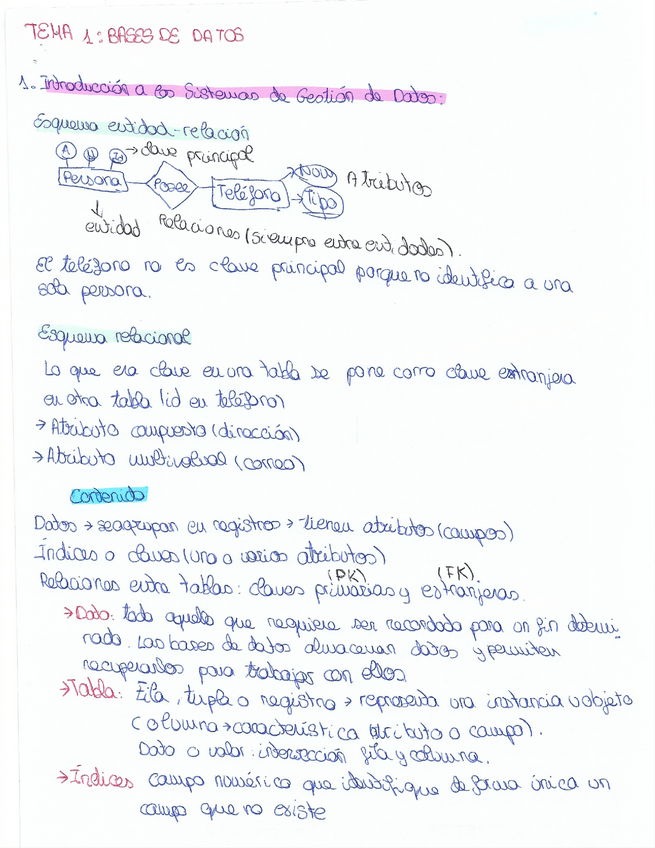 TEMA 1: BASES DE DATOS
1. Introducción a los Sistemas de Gestión de Datos:
Esquema entidad-relación
A N Id → clave principal
Persona Posee Teléfono Num Tipo Atributos
entidad Relaciones (siempre entre entidades).
El teléfono no es clave principal porque no identifica a una
sola persona.
Esquema relacional
Lo que era clave en una tabla se pone como clave extranjera
en otra tabla (id en teléfono)
→ Atributo compuesto (dirección)
→ Atributo multivalual (correo)
Contenido
Datos → se agrupan en registros → tienen atributos (campos)
Índices o claves (uno o varios atributos)
(PK) (FK).
Relaciones entre tablas: claves primarias y extranjeras.
→ Dato: todo aquello que requiere ser recordado para un fin determi_
nado. Las bases de datos almacenan datos y permiten
recuperarlos para trabajar con ellos
→ Tabla: Fila, tupla o registro → representa una instancia u objeto
Columna → característica (atributo o campo).
Dato o valor: intersección fila y columna.
→ Índices campo numérico que identifique de forma única un
campo que no existe